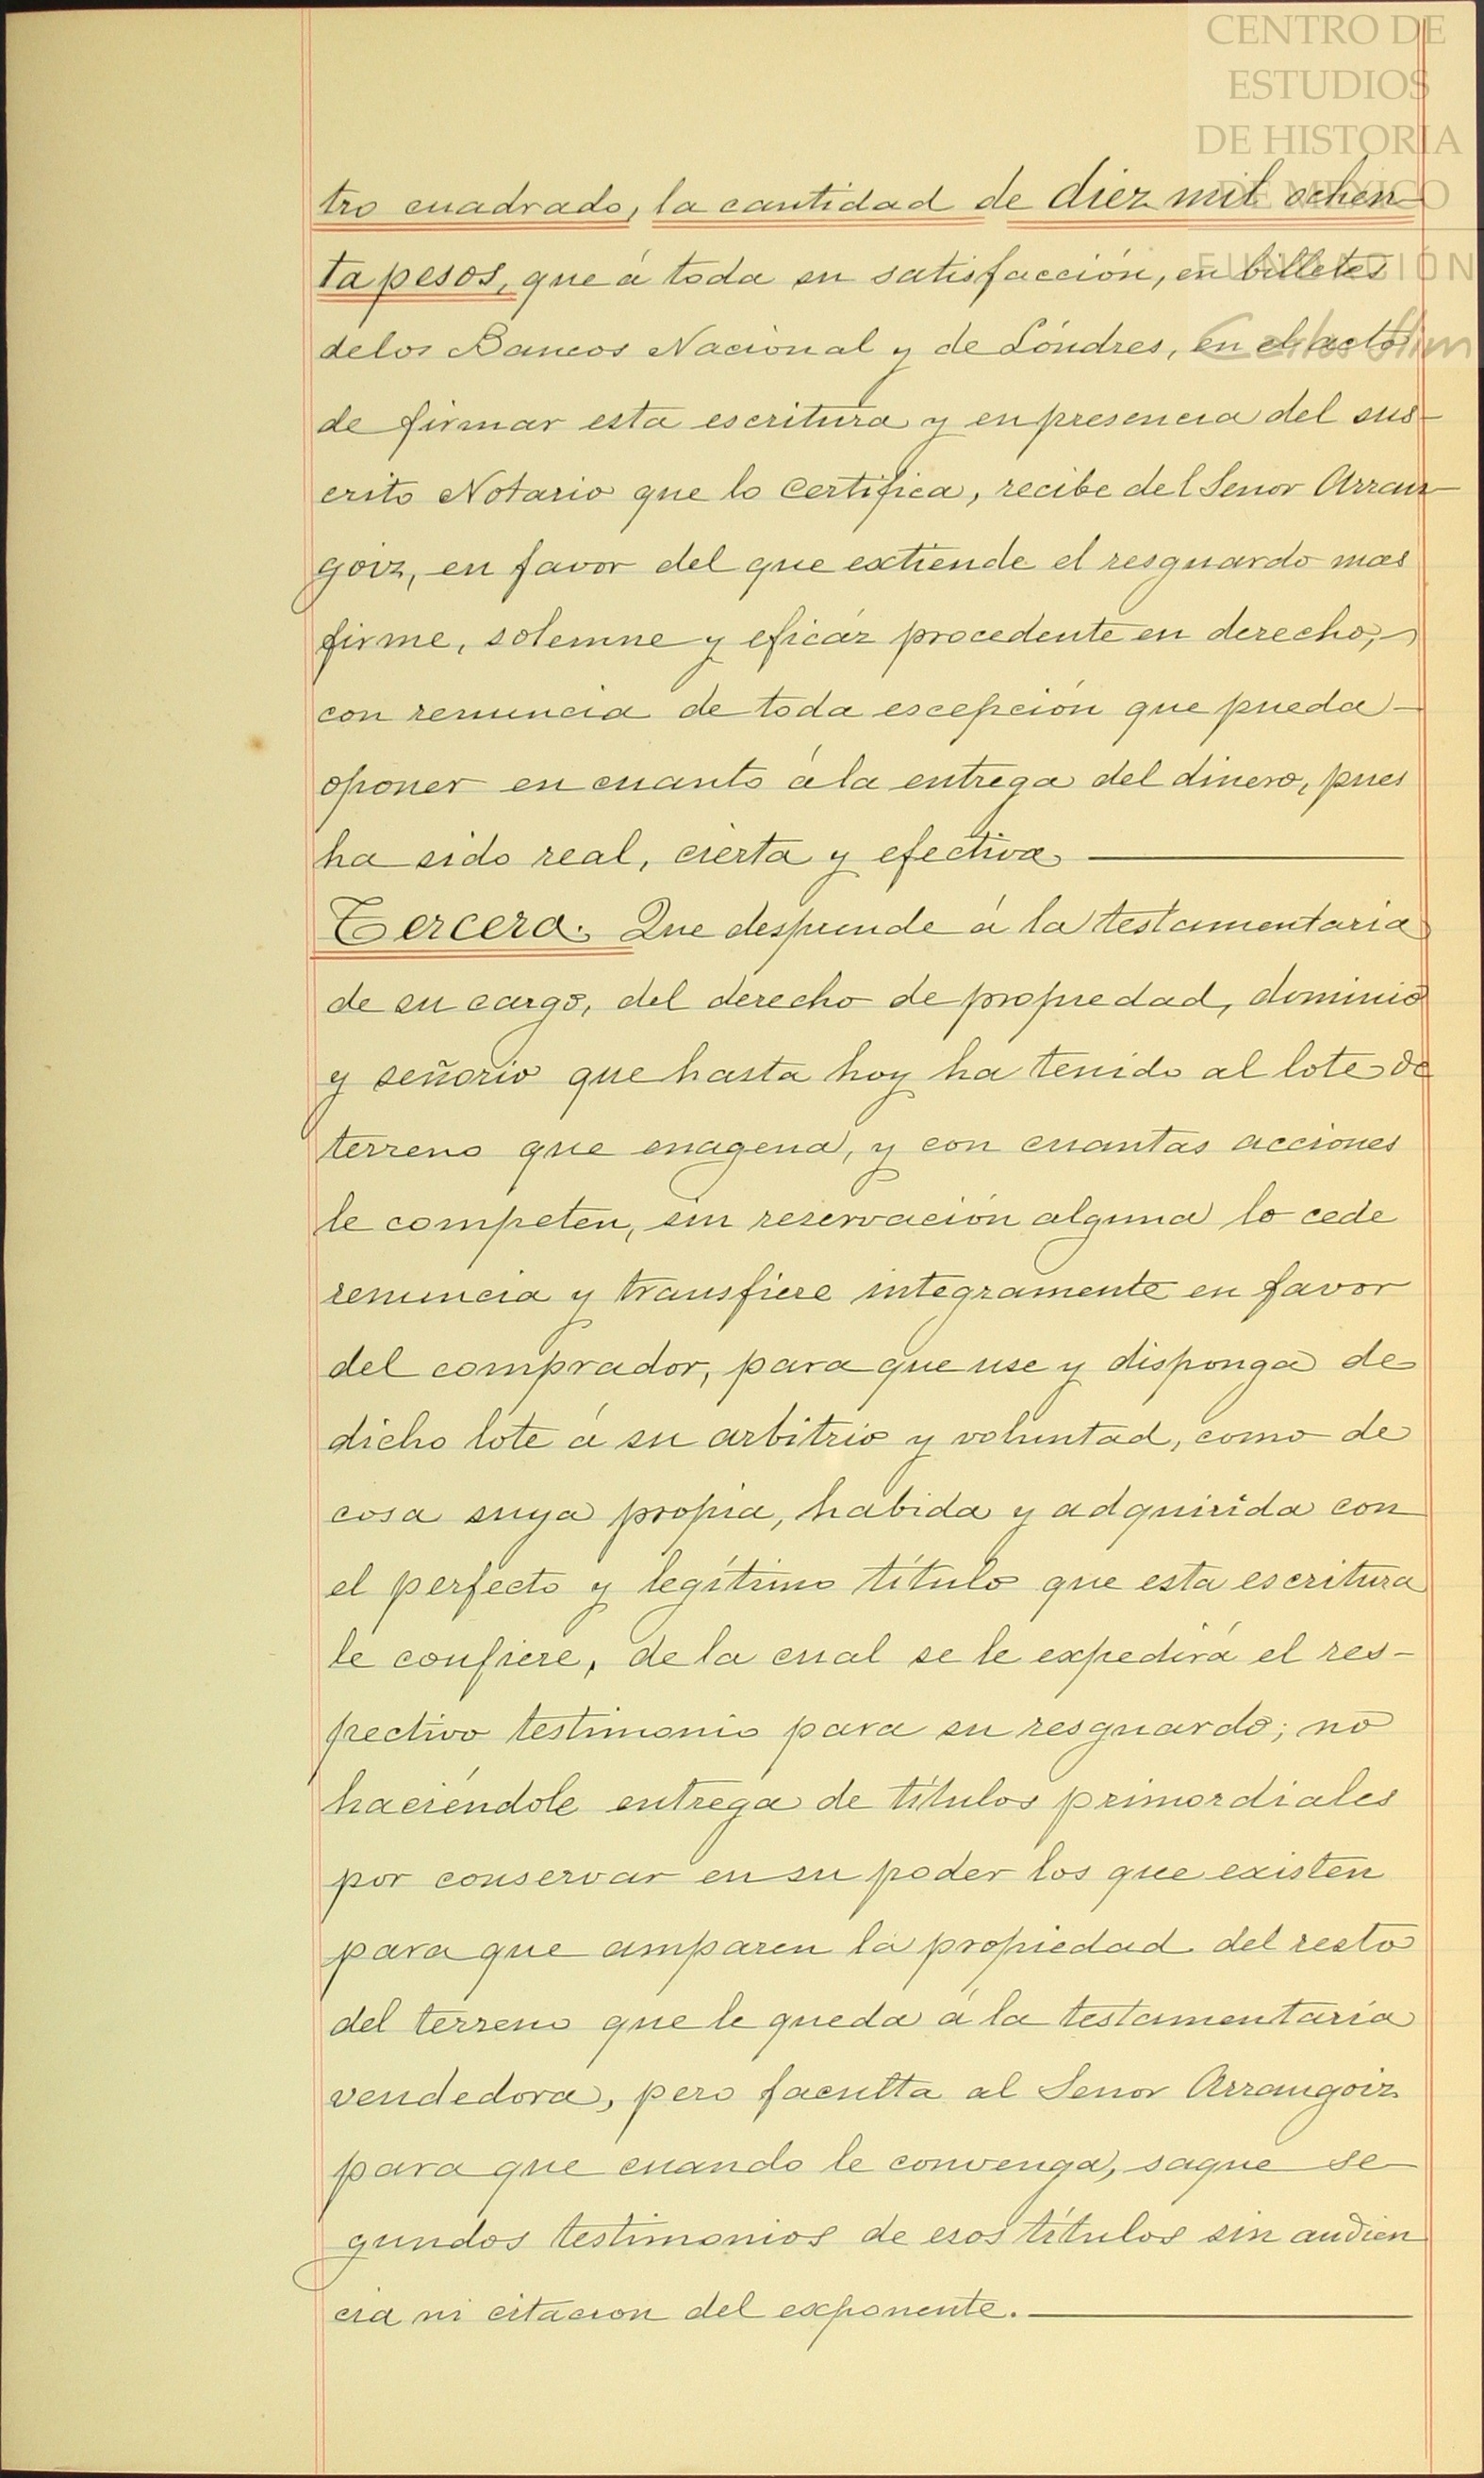 CENTRO DE
ESTUDIOS
DE HISTORIA
DE MÉXICO
FUNDACIÓN
Carlos Slim
tro cuadrado, la cantidad de diez mil ochen-
ta pesos, que á toda su satisfacción, en billetes
de los Bancos Nacional y de Lóndres, en el acto
de firmar esta escritura y en presencia del sus-
crito Notario que lo certifica, recibe del Senor Arran-
goiz, en favor del que extiende el resguardo mas
firme, solemne y eficáz procedente en derecho,
con renuncia de toda escepción que pueda
oponer en cuanto á la entrega del dinero, pues
ha sido real, cierta y efectiva
Tercera. Que desprende á la testamentaria
de su cargo, del derecho de propiedad, dominio
y señorio que hasta hoy ha tenido al lote de
terreno que enagena, y con cuantas acciones
le competen, sin reservación alguna lo cede
renuncia y transfiere integramente en favor
del comprador, para que use y disponga de
dicho lote á su arbitrio y voluntad, como de
cosa suya propia, habida y adquirida con
el perfecto y legítimo título que esta escritura
le confiere, de la cual se le expedirá el res-
pectivo testimonio para su resguardo; no
haciéndole entrega de títulos primordiales
por conservar en su poder los que existen
para que amparen la propiedad del resto
del terreno que le queda á la testamentaría
vendedora, pero faculta al Senor Arrangoiz
para que cuando le convenga, saque se-
gundos testimonios de esos títulos sin audien
cia ni citacion del exponente.